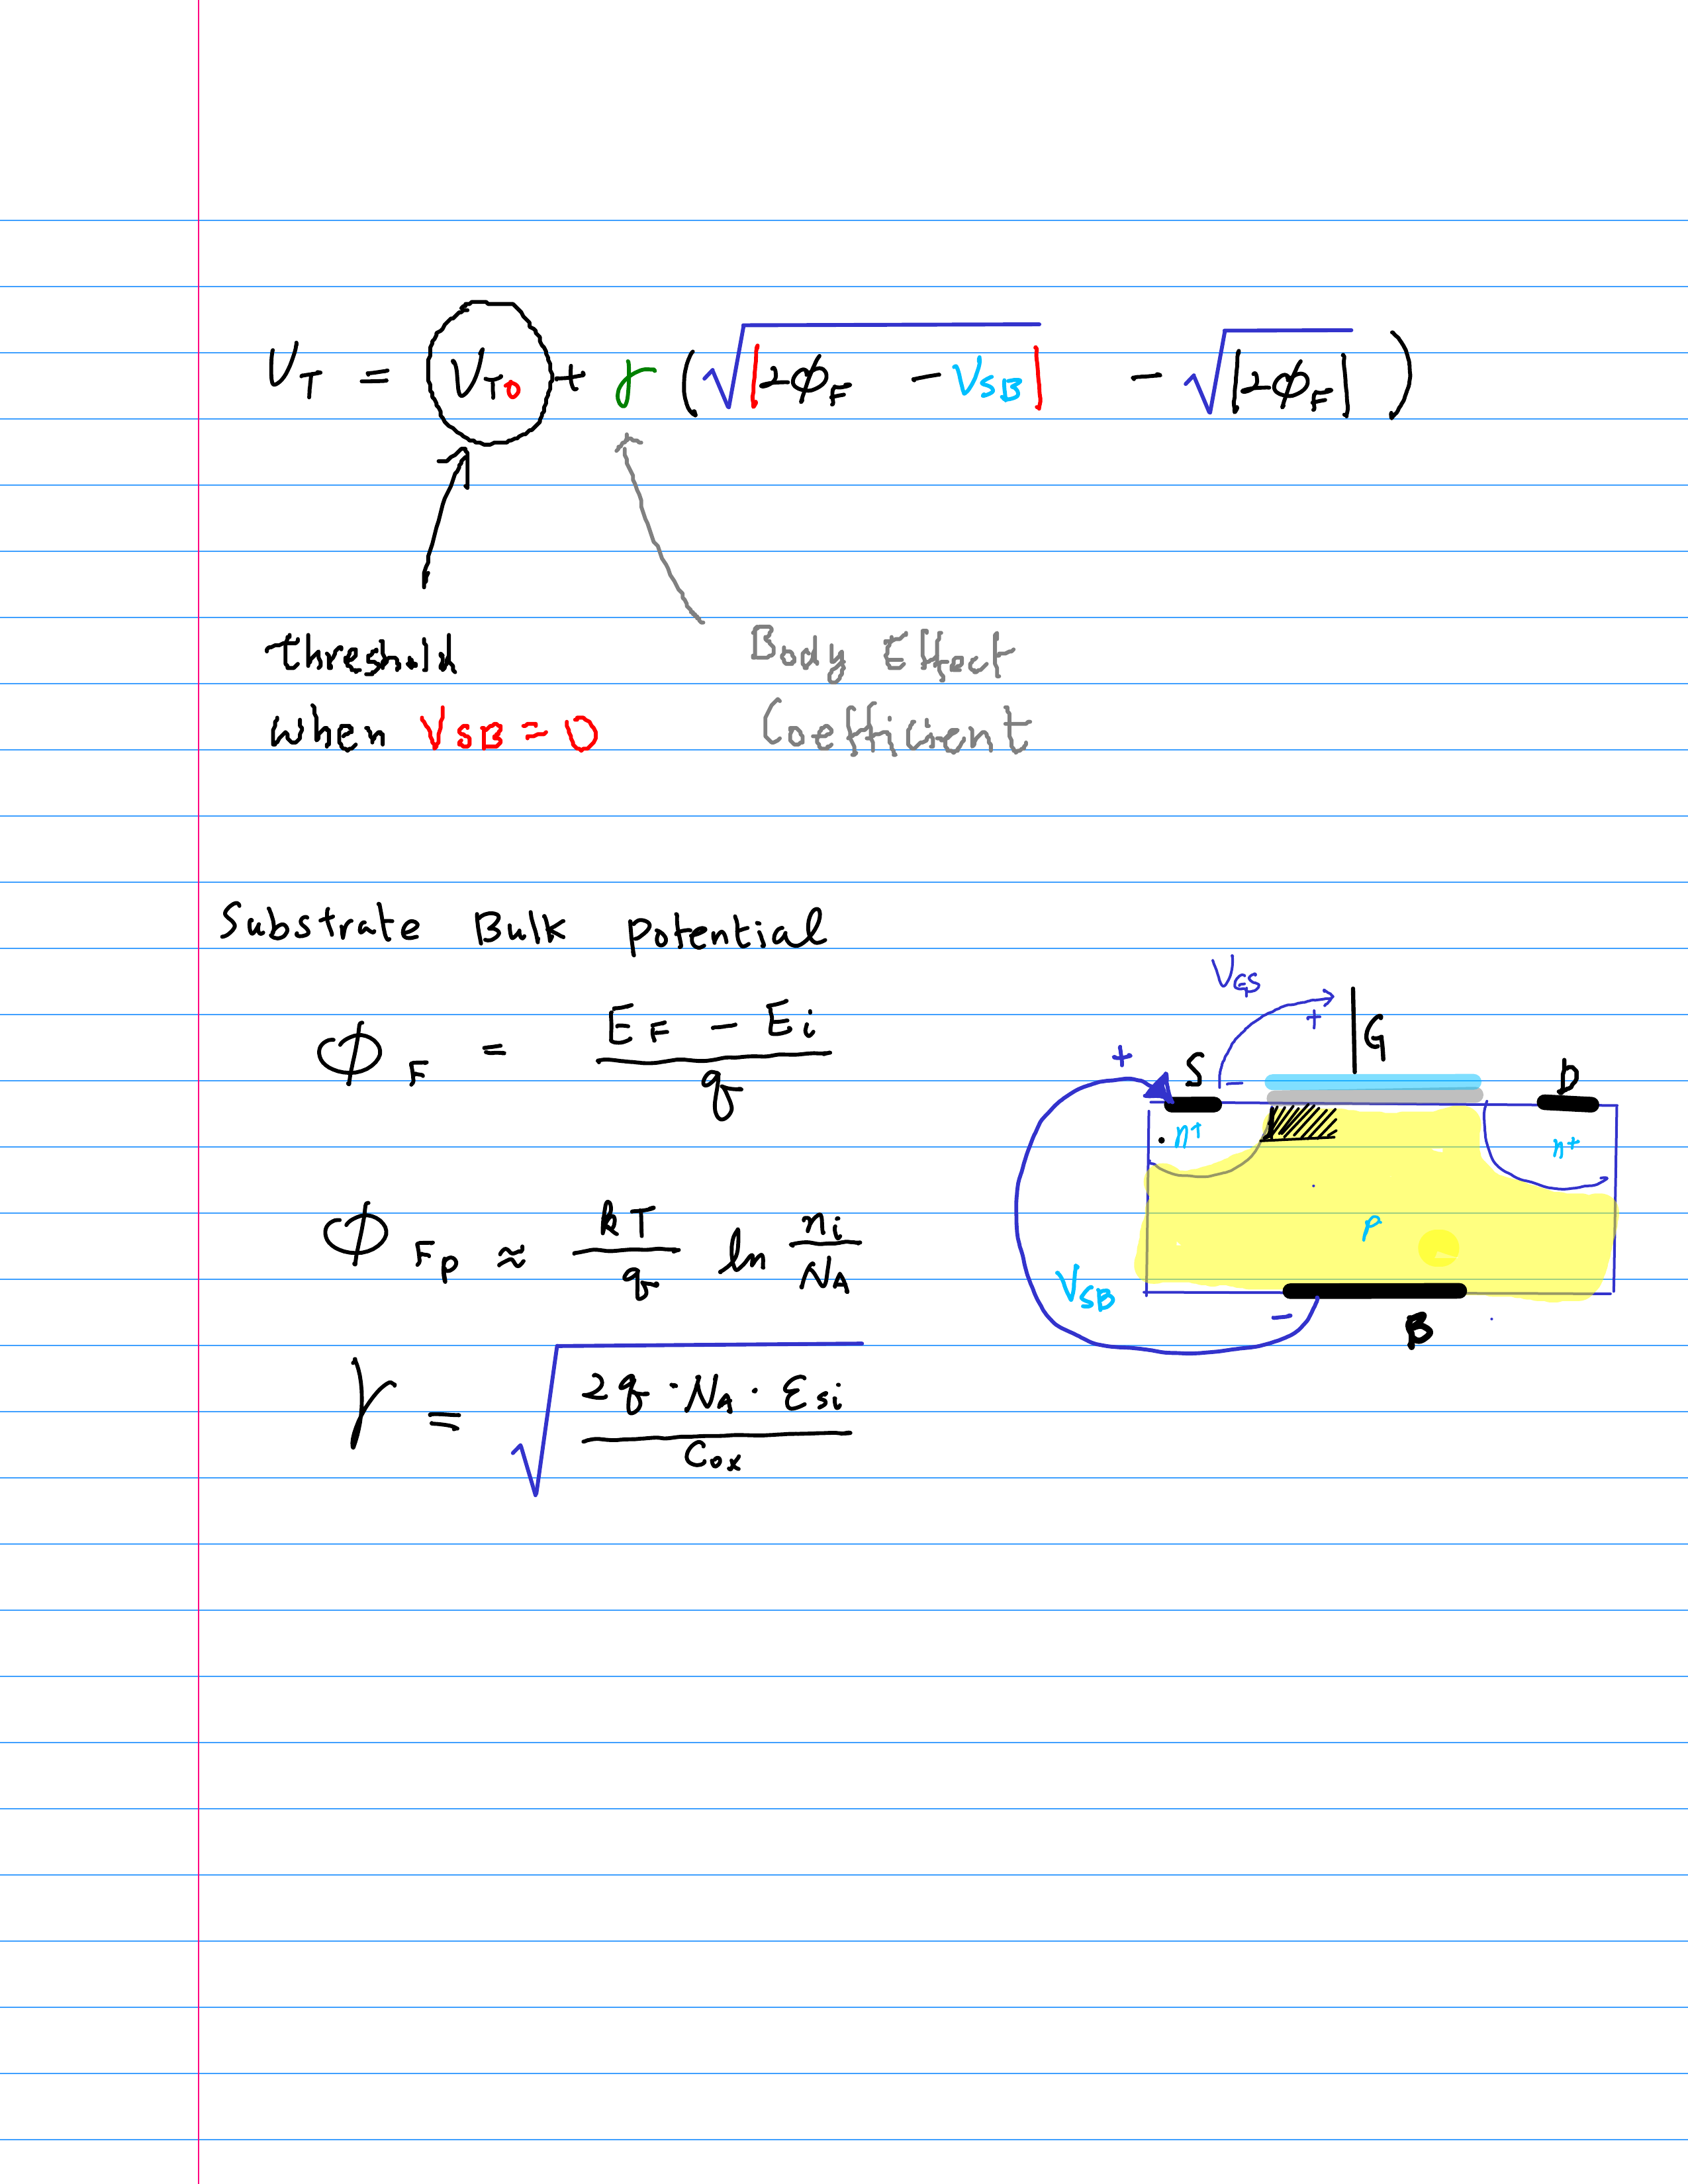 V_T = V_T0 + γ (√|2ϕ_F - V_SB| - √|2ϕ_F|)
threshold
when V_SB = 0
Body Effect
Coefficient
Substrate Bulk Potential
ϕ_F = (E_F - E_i) / q
ϕ_Fp ≈ kT/q ln n_i/N_A
γ = √(2q · N_A · ε_si / C_ox)
V_GS
+
G
+
S
-
D
n+
n+
p
V_SB
-
B